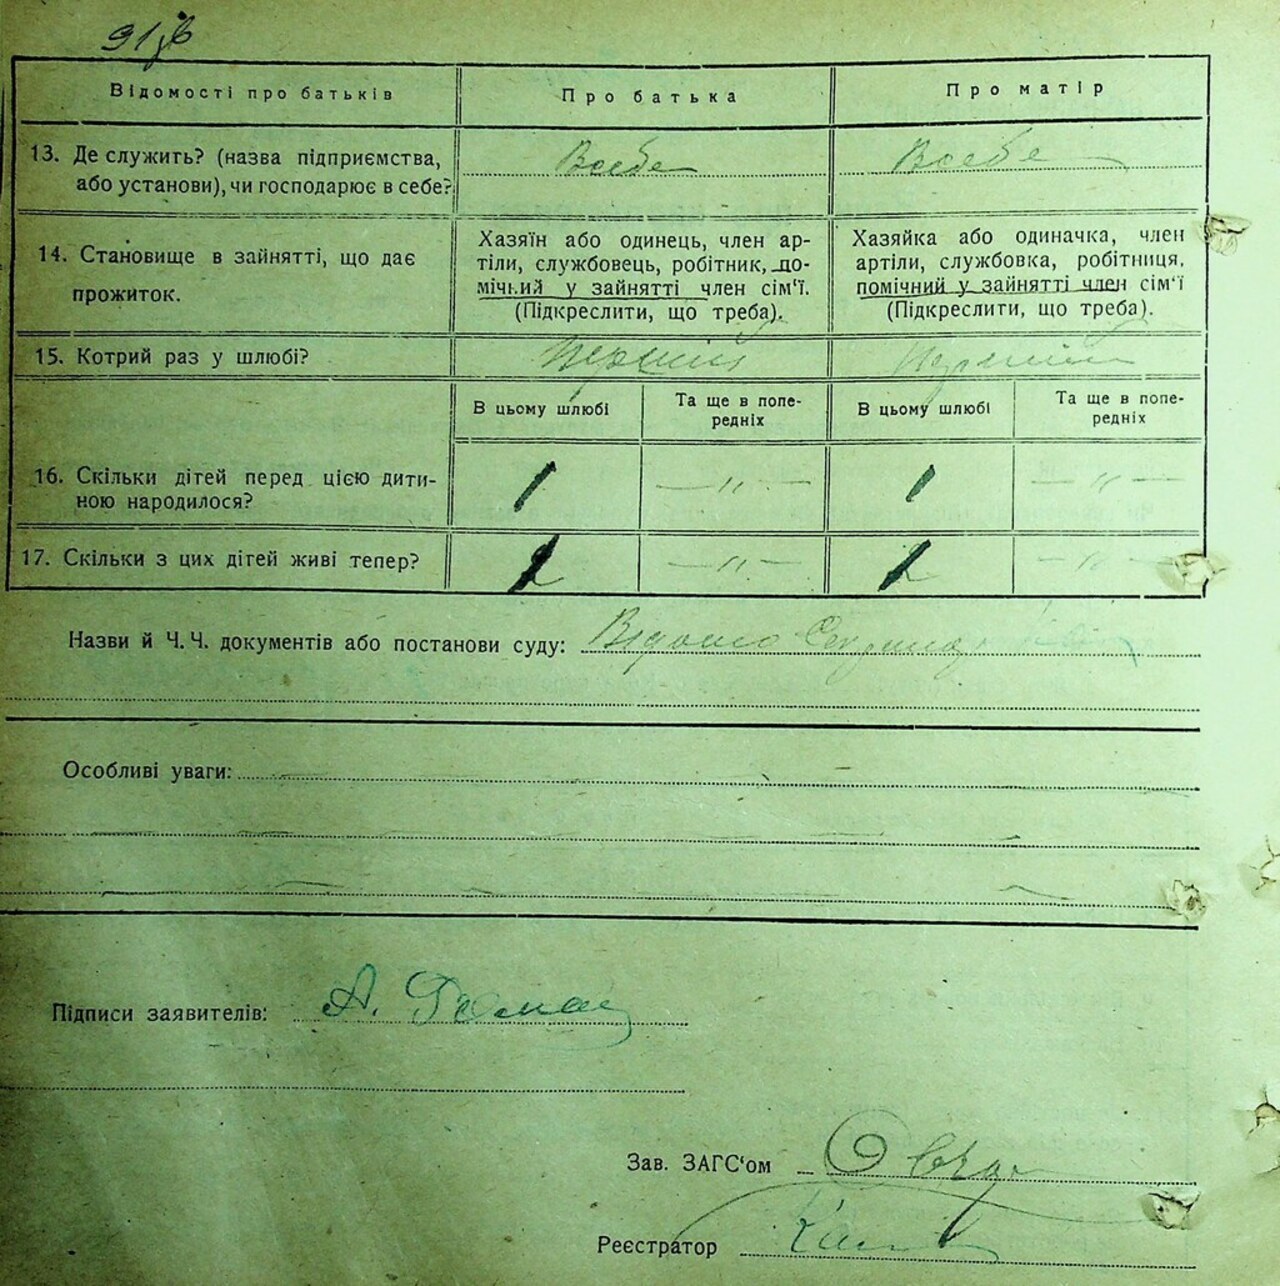 Відомості про батьків
Про батька
Про матір
13. Де служить? (назва підприємства,
або установи), чи господарює в себе?
Всебе
Всебе
14. Становище в зайнятті, що дає
прожиток.
Хазяїн або одинець, член ар-
тіли, службовець, робітник, по-
мічний у зайнятті член сім'ї.
(Підкреслити, що треба).
Хазяйка або одиначка, член
артіли, службовка, робітниця,
помічний у зайнятті член сім'ї
(Підкреслити, що треба).
15. Котрий раз у шлюбі?
Перший
Перший
В цьому шлюбі
Та ще в попе-
редніх
В цьому шлюбі
Та ще в попе-
редніх
16. Скільки дітей перед цією дити-
ною народилося?
1
— „ —
1
— „ —
17. Скільки з цих дітей живі тепер?
— „ —
— „ —
Назви й Ч. Ч. документів або постанови суду:
Особливі уваги:
Підписи заявителів: А.
Зав. ЗАГС'ом
Реєстратор